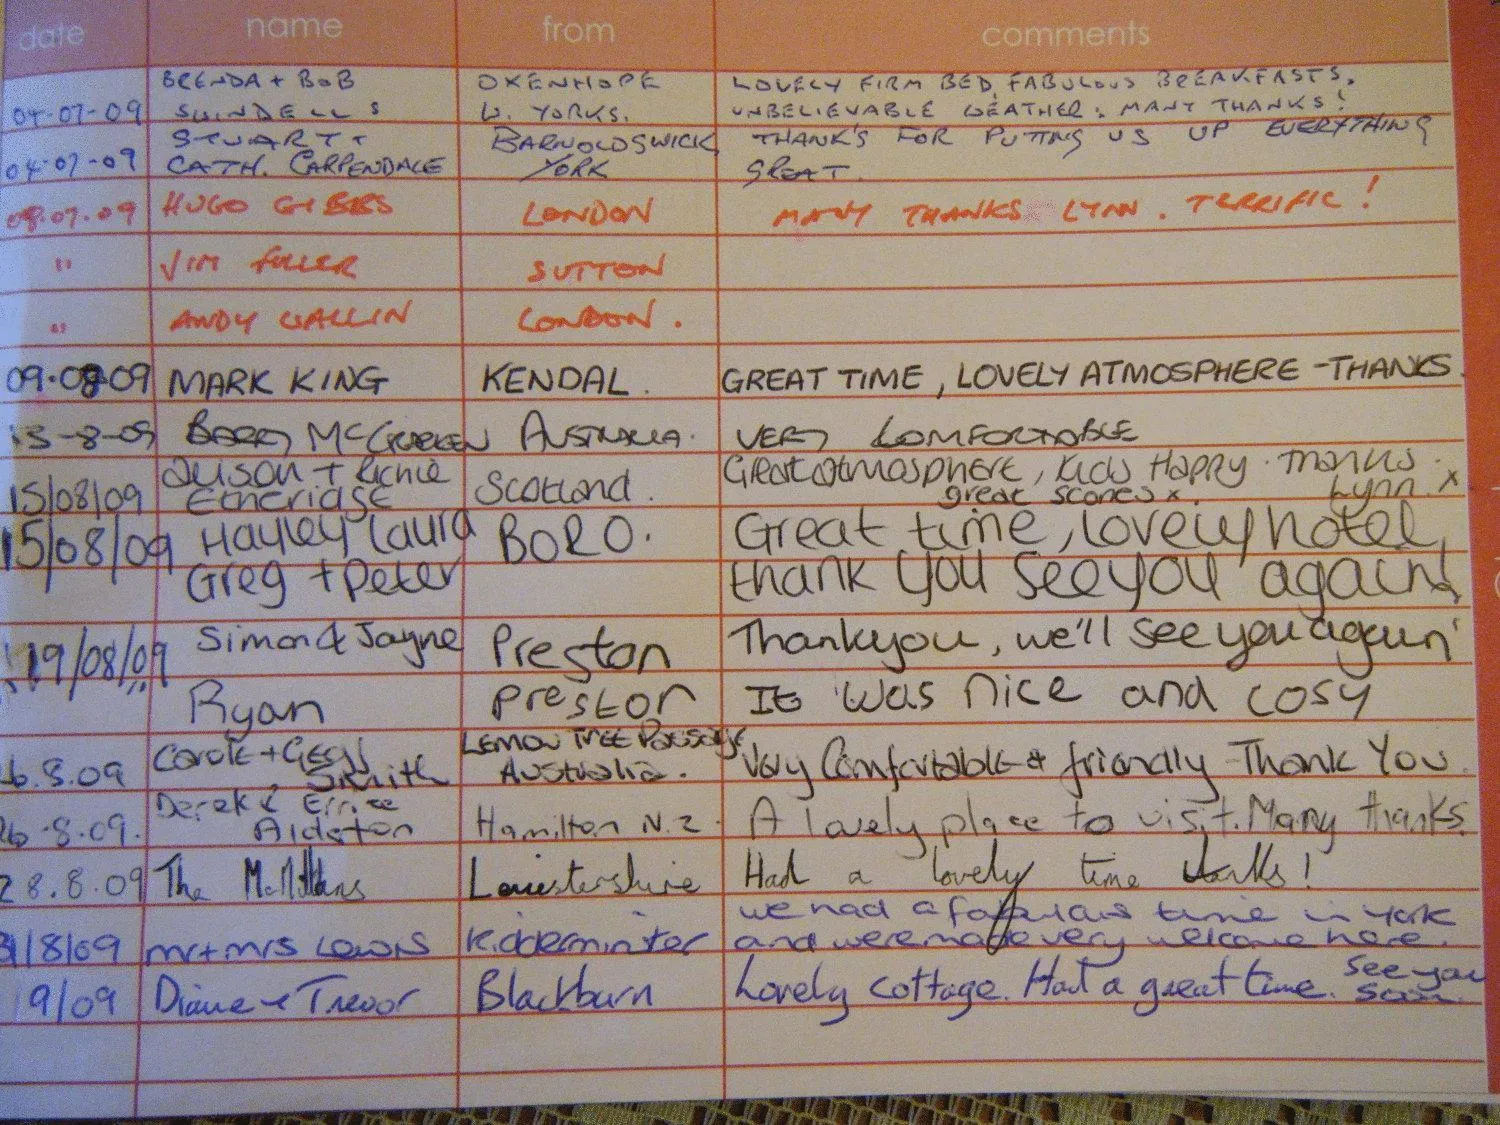 date name from comments
BRENDA + BOB OXENHOPE LOVELY FIRM BED, FABULOUS BREAKFASTS,
04-07-09 SWINDELLS W. YORKS. UNBELIEVABLE WEATHER. MANY THANKS!
STUART + BARNOLDSWICK THANK'S FOR PUTTING US UP EVERYTHING
04-07-09 CATH. CARPENDALE YORK GREAT.
08.07.09 HUGO GIBBS LONDON MANY THANKS LYNN. TERRIFIC!
" JIM FULLER SUTTON
" ANDY WALLIN LONDON.
09.08 09 MARK KING KENDAL. GREAT TIME, LOVELY ATMOSPHERE - THANKS.
13-8-09 BARRY McCRACKEN AUSTRALIA. VERY COMFORTABLE
Alison + Richie Great atmosphere, kids Happy. Thanks
15/08/09 Etheridge Scotland. great scones x. Lynn. x
15/08/09 Hayley Laura BORO. Great time, lovely hotel,
Greg + Peter thank you see you again!
19/08/09 Simon & Jayne Preston Thankyou, we'll see you again'
Ryan Preston It was nice and cosy
Carole + Geoff LEMON TREE Passage
6.8.09 Smith Australia. Very Comfortable & friendly - Thank You.
Derek &
26.8.09. Hamilton N.Z. A lovely place to visit. Many thanks.
28.8.09 The McMillans Leicestershire Had a lovely time thanks!
we had a fabulous time in York
31/8/09 mr + mrs Lewis Kidderminster and were made very welcome here.
9/09 Diane & Trevor Blackburn Lovely cottage. Had a great time. See you
soon.